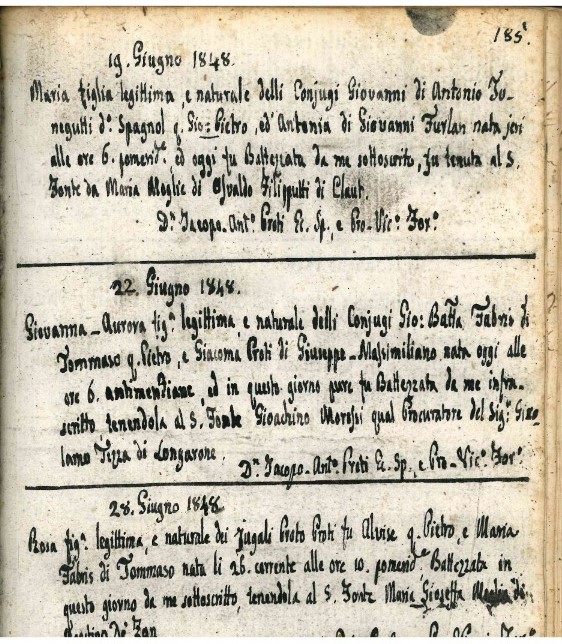 185.
19. Giugno 1848.
Maria figlia legittima, e naturale delli Conjugi Giovanni di Antonio To-
negutti d.º Spagnol q. Gio: Pietro, ed Antonia di Giovanni Furlan nata jeri
alle ore 6. pomerid.e ed oggi fu Battezzata da me sottoscrito, fu tenuta al S.
Fonte da Maria Moglie di Osvaldo Filipputti di Claut.
D.n Jacopo-Ant.º Proti E. Sp., e Pro-Vic.º For.º
22. Giugno 1848.
Giovanna-Aurora fig.a legittima e naturale delli Conjugi Gio: Batta Fabris di
Tommaso q. Pietro, e Giacoma Proti di Giuseppe-Massimiliano nata oggi alle
ore 6. antimeridiane, ed in questo giorno pure fu Battezzata da me infra-
scritto tenendola al S. Fonte Gioachino Morossi qual Procuratore del Sig.r Giro
lamo Tezza di Longarone.
D.n Jacopo-Ant.º Proti E. Sp., e Pro-Vic.º For.º
28. Giugno 1848.
Rosa fig.a legittima, e naturale dei Jugali Proto Proti fu Alvise q. Pietro, e Maria
Fabris di Tommaso nata li 26. corrente alle ore 10. pomerid.e Battezzata in
questo giorno da me sottoscritto, tenendola al S. Fonte Maria Gioseffa Moglie di
De Zan